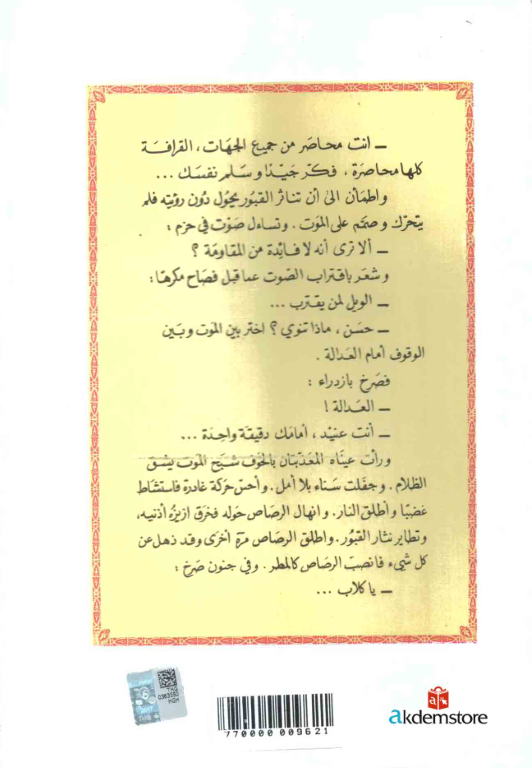 ــ انت محاصر من جميع الجهات ، القرافة
كلها محاصرة ، فكر جيدًا وسلم نفسك ...
واطمأن الى أن تناثر القبور يحول دون رؤيته فلم
يتحرك وصمم على الموت . وتساءل صوت في حزم :
ــ ألا ترى أنه لا فائدة من المقاومة ؟
وشعر باقتراب الصوت عما قبل فصاح مكرها :
ــ الويل لمن يقترب ...
ــ حسن ، ماذا تنوي ؟ اختر بين الموت وبين
الوقوف أمام العدالة .
فصرخ بازدراء :
ــ العدالة !
ــ أنت عنيد ، أمامك دقيقة واحدة ...
ورأت عيناه المعذبتان بالخوف شبح الموت يشق
الظلام . وجفلت سناء بلا أمل . وأحس حركة غادرة فاستشاط
غضبا وأطلق النار . وانهال الرصاص حوله فخرق أزيزه أذنيه ،
وتطاير نثار القبور . واطلق الرصاص مرة أخرى وقد ذهل عن
كل شيء فانصب الرصاص كالمطر . وفي جنون صرخ :
ــ يا كلاب ...
770000 009621
akdemstore